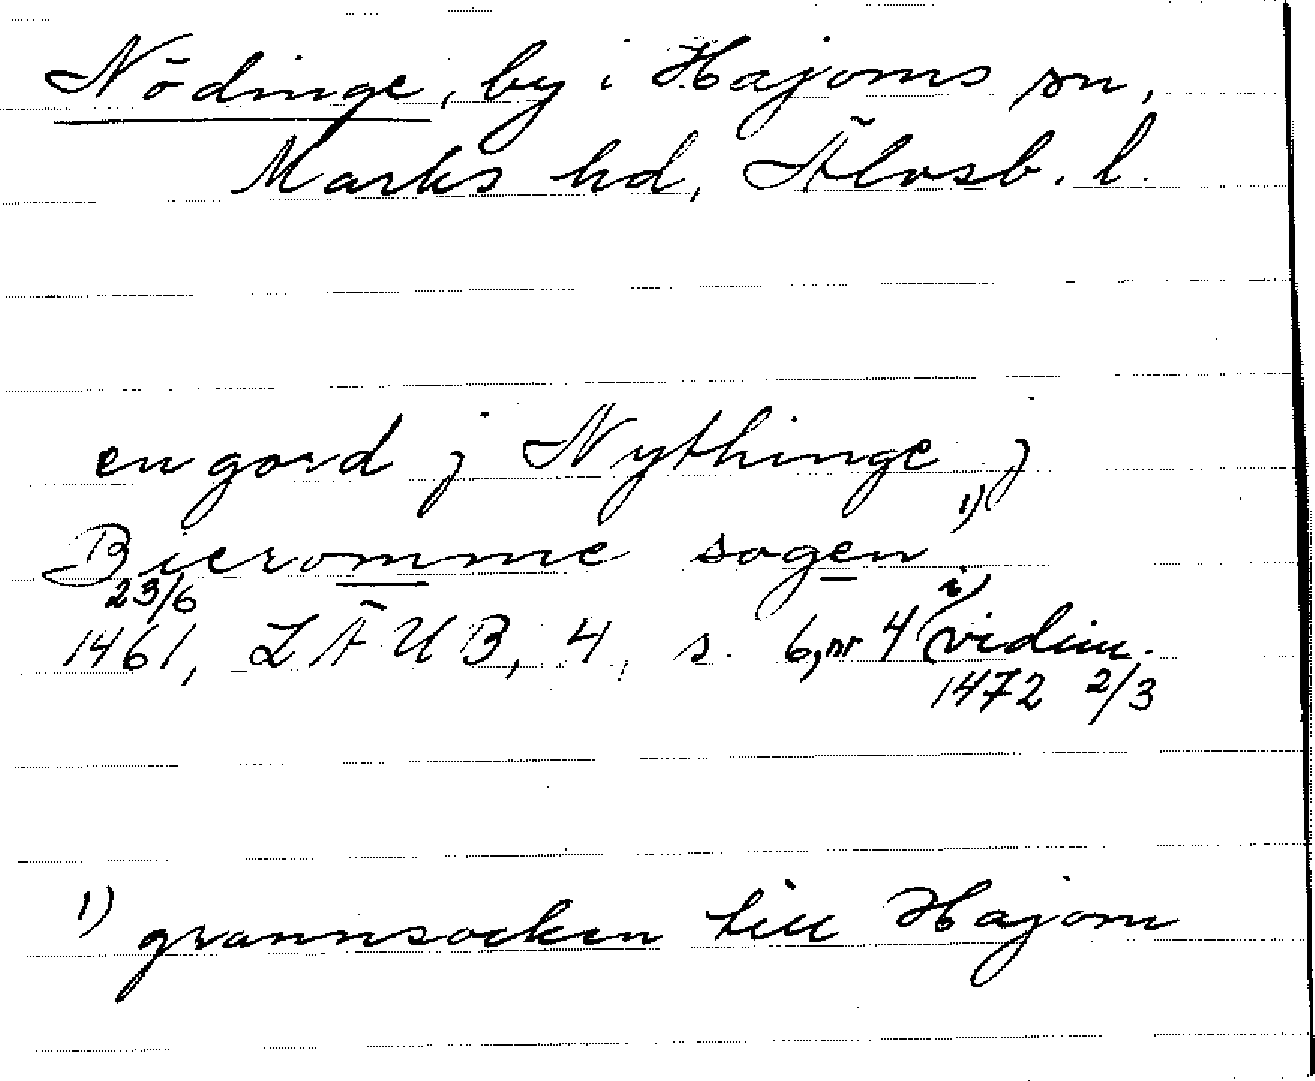 Nödinge, by i Hajoms sn,
Marks hd, Älvsb. l.
en gord j Nythinge j
Bieromme sogen 1)
23/6
1461, LÄUB, 4, s. 6, nr 4 (i vidim.
1472 2/3
1) grannsocken till Hajom